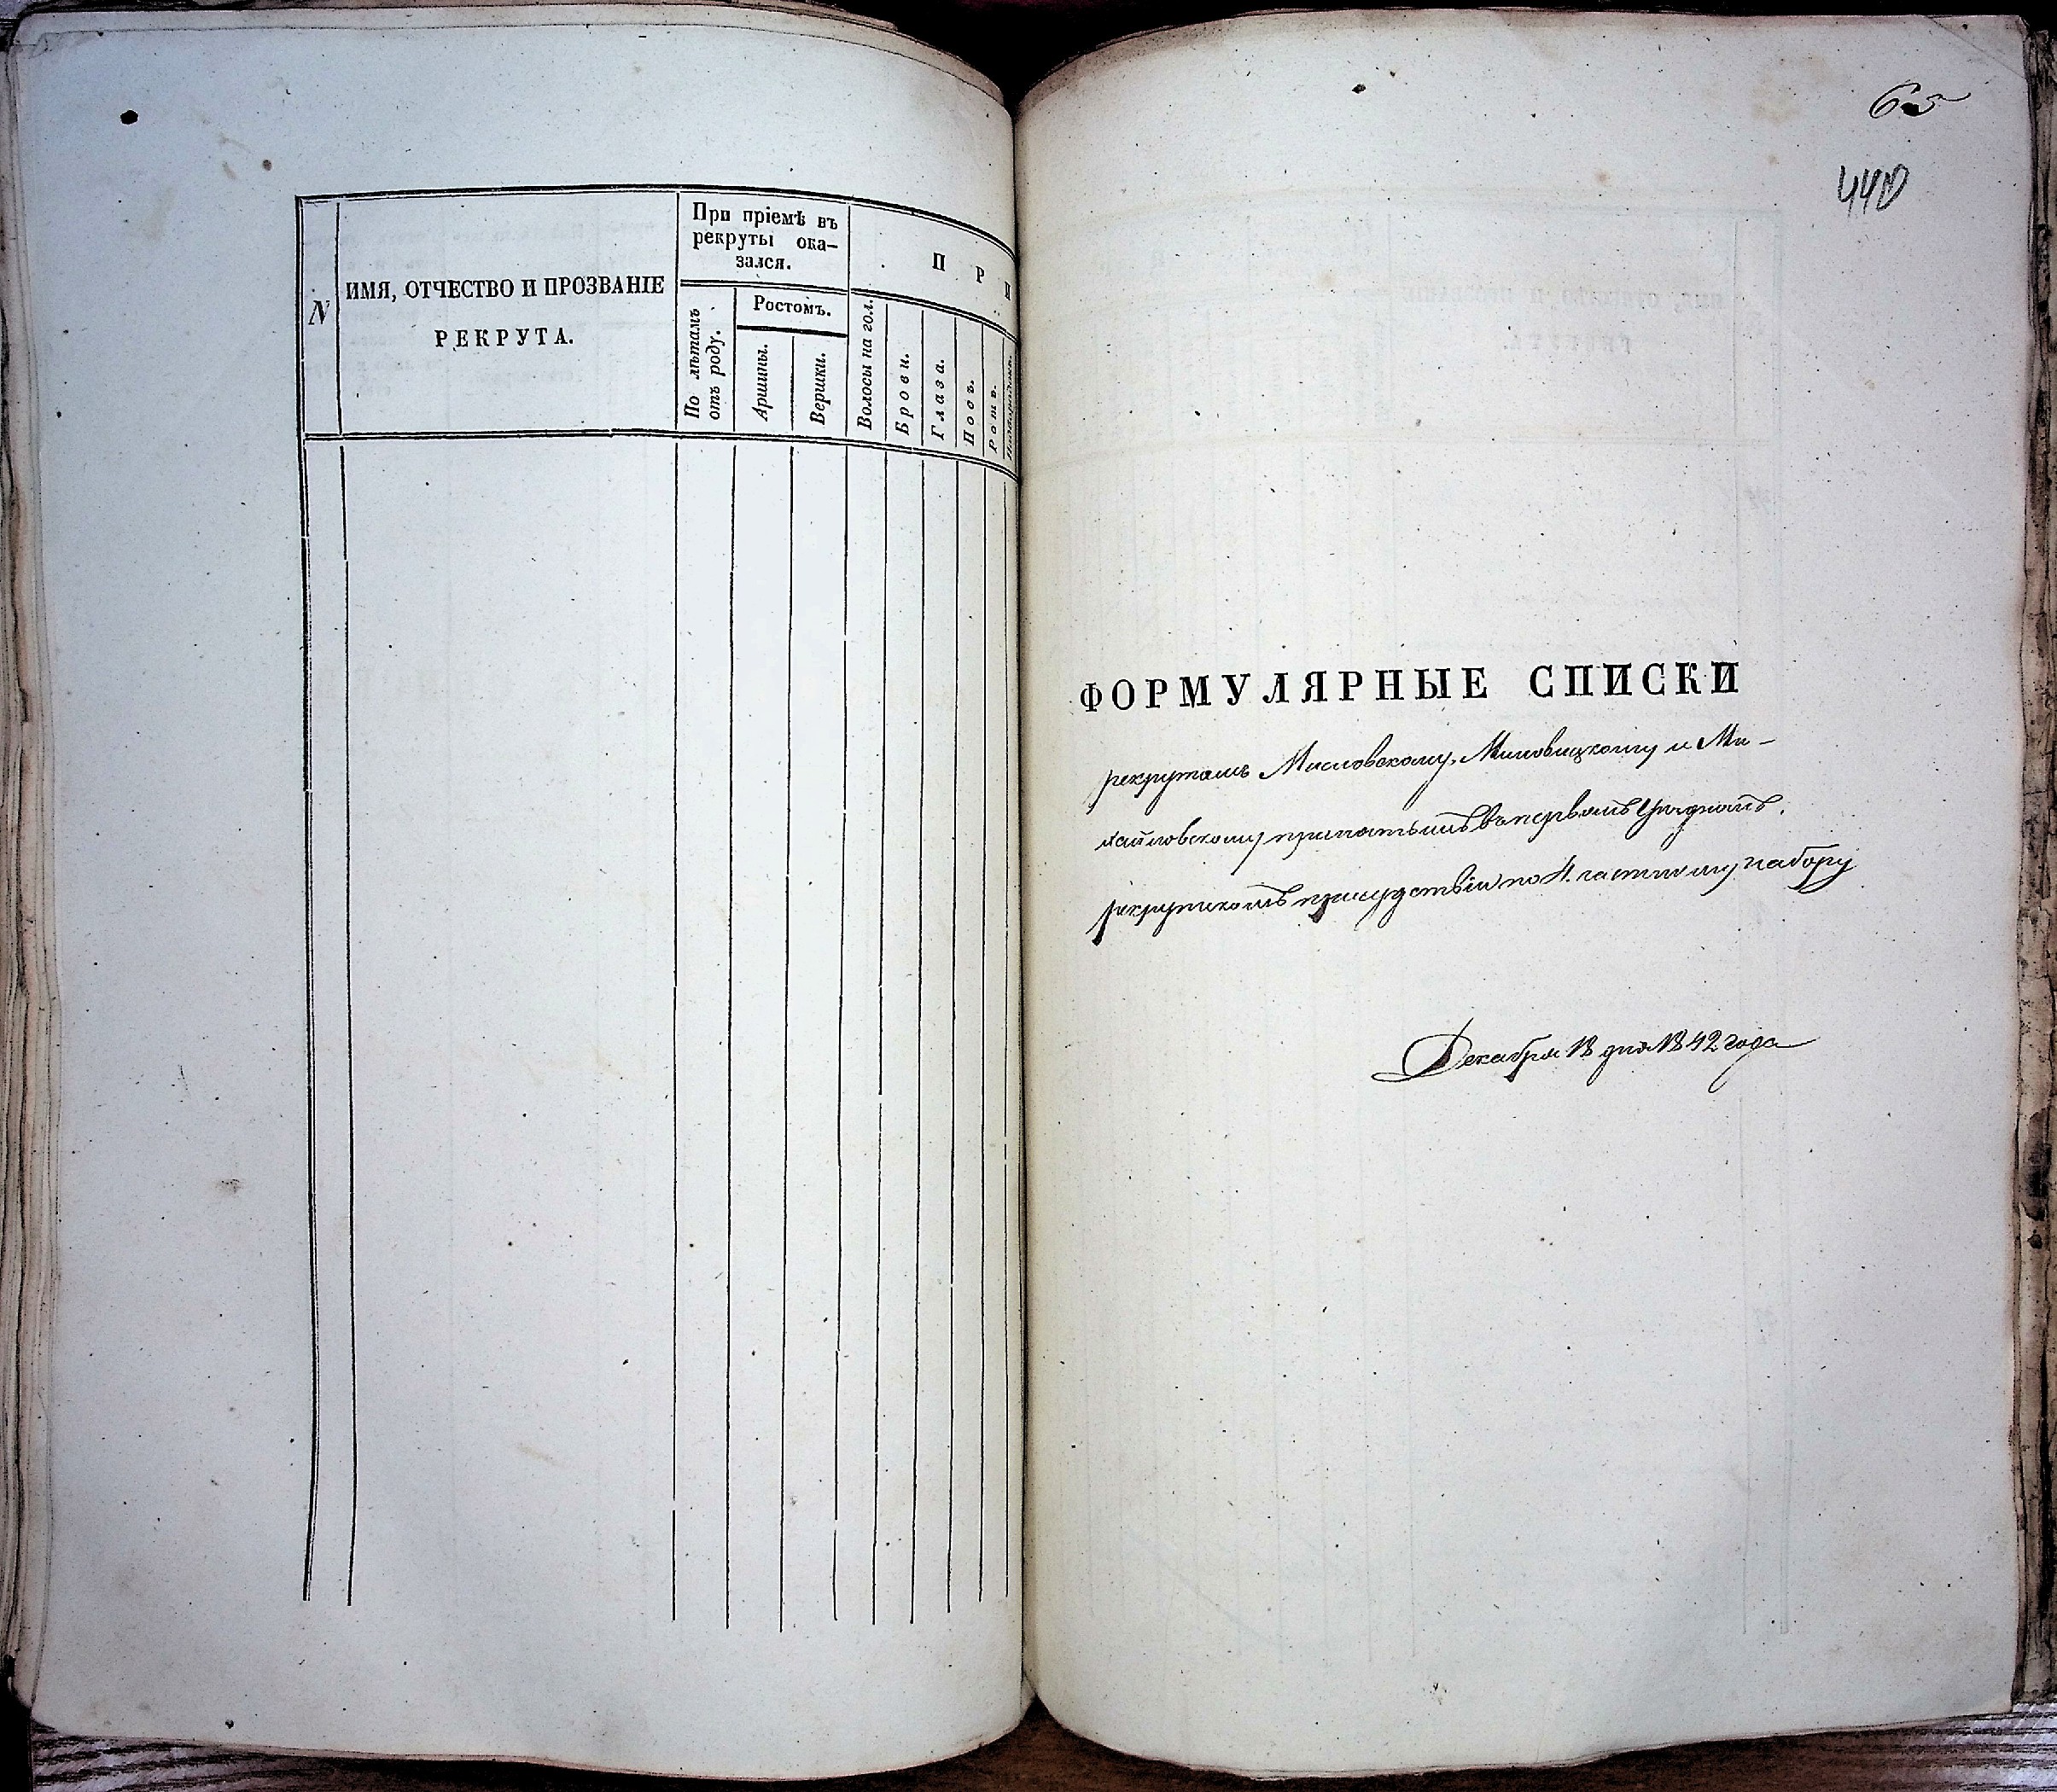 N
ИМЯ, ОТЧЕСТВО И ПРОЗВАНІЕ
РЕКРУТА.
При пріемѣ въ
рекруты ока-
зался.
По лѣтамъ
отъ роду.
Ростомъ.
Аршины.
Вершки.
П Р И
Волосы на гол.
Брови.
Глаза.
Носъ.
Ротъ.
65
440
ФОРМУЛЯРНЫЕ СПИСКИ
рекрутамъ Мисловскому, и Ми-
хайловскому принятымъ въ первомъ Уѣздномъ
рекрутскомъ присудствіи по 4. частному набору
Декабря 18 дня 1842 года